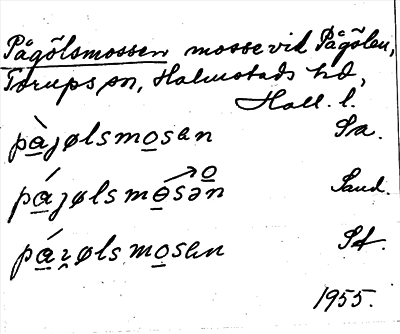 Pågölsmossen mosse vid Pågölen,
Torups sn, Halmstads hd,
Hall. l.
pàȷølsmosen Sa.
páȷølsmösən o Sand.
páɀølsmosen St.
1955.